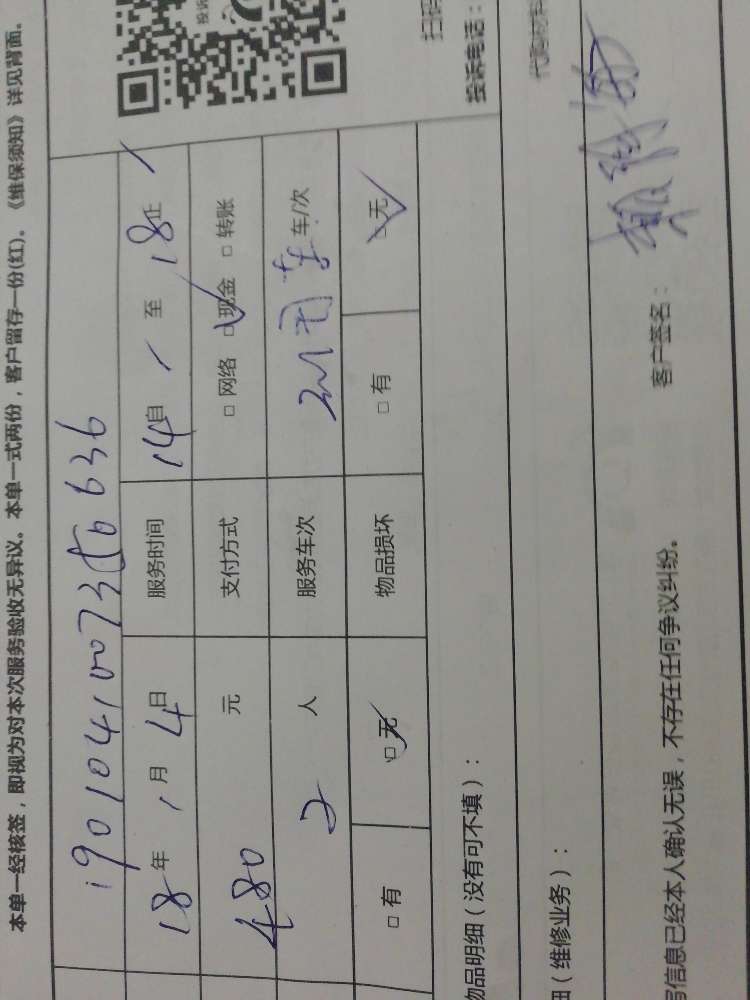 本单一经核签，即视为对本次服务验收无异议。本单一式两份，客户留存一份(红)。《维保须知》详见背面。
投诉
扫码
投诉电话：
1901041007356636
18年1月4日 服务时间 14自 / 至 18止 /
480 元 支付方式 □网络 ☑现金 □转账
2 人 服务车次 车/次
□有 ☑无 物品损坏 □有 ☑无
物品明细（没有可不填）：
细（维修业务）：
客户签名：
写信息已经本人确认无误，不存在任何争议纠纷。